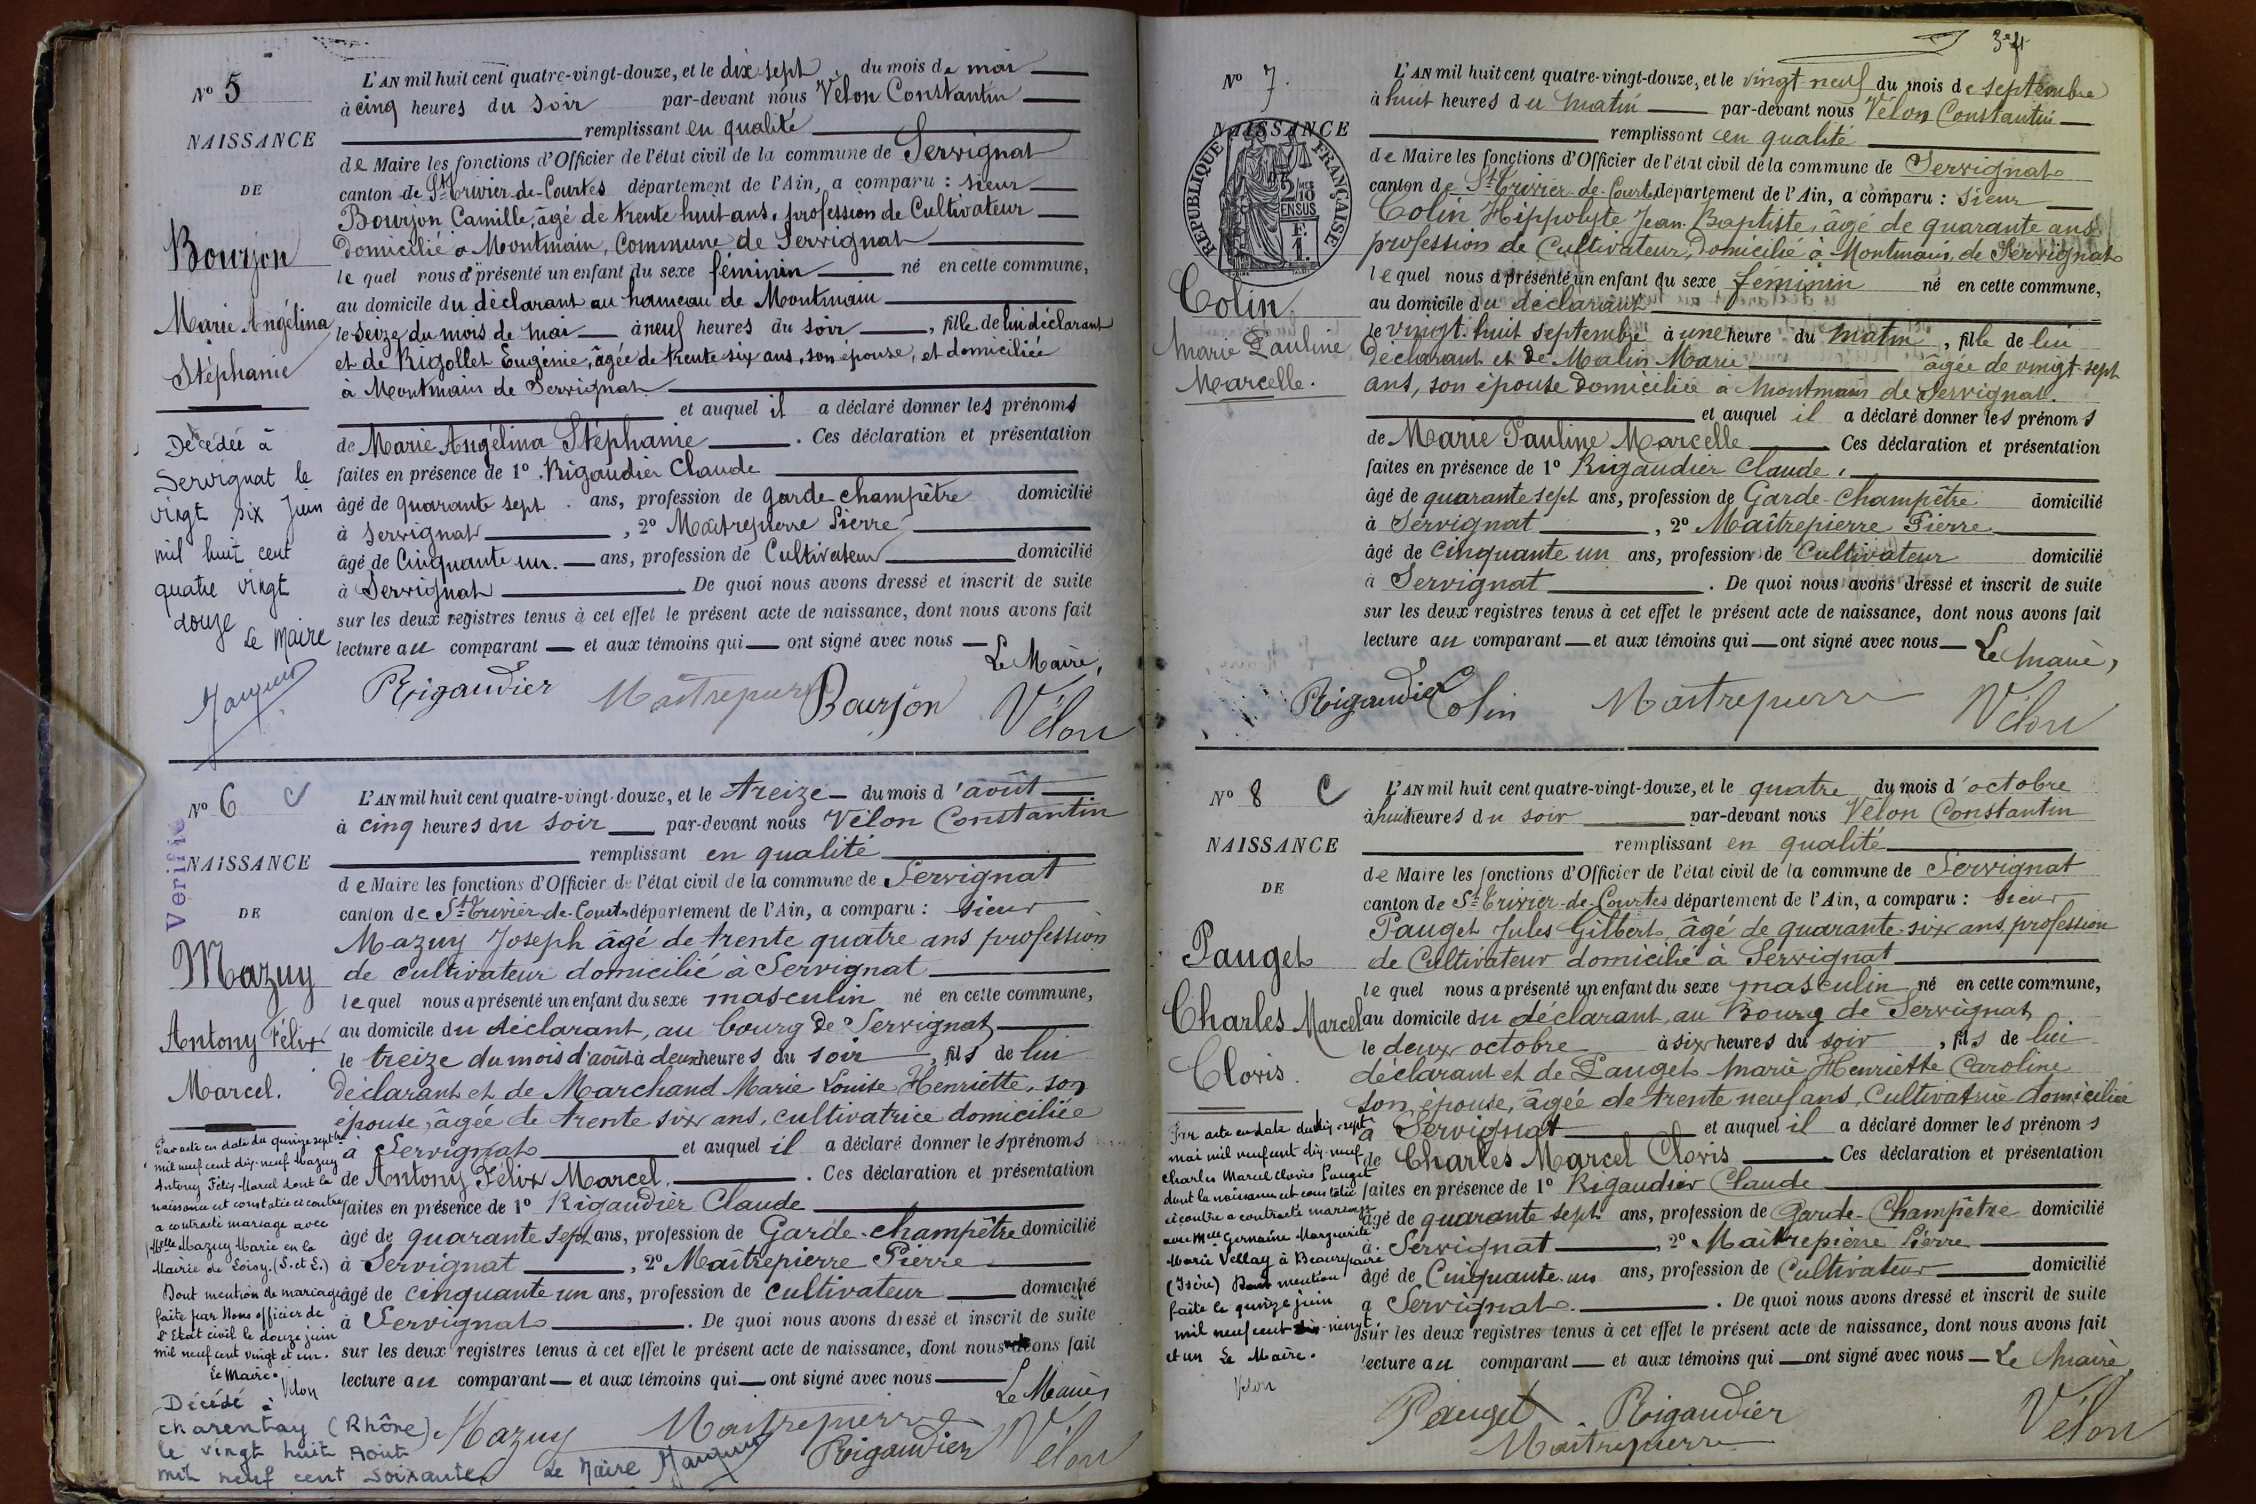 Nº 5
NAISSANCE
DE
Bourjon
Marie Angélina
Stéphanie
Décédée à
Servignat le
vingt six juin
mil huit cent
quatre vingt
douze
Le Maire
L'AN mil huit cent quatre-vingt-douze, et le dix-sept du mois de mai
à cinq heures du soir par-devant nous Vélon Constantin
remplissant en qualité
de Maire les fonctions d'Officier de l'état civil de la commune de Servignat
canton de St-Trivier-de-Courtes département de l'Ain, a comparu : sieur
Bourjon Camille, âgé de trente huit ans, profession de Cultivateur
domicilié à Montmain, Commune de Servignat
lequel nous a présenté un enfant du sexe féminin né en cette commune,
au domicile du déclarant au hameau de Montmain
le seize du mois de mai à neuf heures du soir, fille de lui déclarant
et de Rigollet Eugénie, âgée de trente six ans, son épouse, et domiciliée
à Montmain de Servignat
et auquel il a déclaré donner les prénoms
de Marie Angélina Stéphanie. Ces déclaration et présentation
faites en présence de 1º Rigaudier Claude
âgé de quarante sept ans, profession de garde champêtre domicilié
à Servignat, 2º Maîtrepierre Pierre
âgé de Cinquante un ans, profession de Cultivateur domicilié
à Servignat De quoi nous avons dressé et inscrit de suite
sur les deux registres tenus à cet effet le présent acte de naissance, dont nous avons fait
lecture au comparant et aux témoins qui ont signé avec nous
Le Maire,
Rigaudier Maîtrepierre Bourjon Vélon
Nº 6 C
Vérifié
NAISSANCE
DE
Mazuy
Antony Félix
Marcel.
Par acte en date du quinze septbre
mil neuf cent dix-neuf Mazuy
Antony Félix Marcel dont la
naissance est constatée ci contre
a contracté mariage avec
Melle Mazuy Marie en la
Mairie de Loisy. (S. et L.)
Dont mention de mariage
faite par Nous officier de
l'Etat civil le douze juin
mil neuf cent vingt et un.
Le Maire.
Vélon
Décédé à
Charentay (Rhône).
le vingt huit Août
mil neuf cent soixante,
Le Maire
L'AN mil huit cent quatre-vingt-douze, et le treize du mois d'août
à cinq heures du soir par-devant nous Vélon Constantin
remplissant en qualité
de Maire les fonctions d'Officier de l'état civil de la commune de Servignat
canton de St-Trivier-de-Courtes département de l'Ain, a comparu : sieur
Mazuy Joseph âgé de trente quatre ans profession
de cultivateur domicilié à Servignat
lequel nous a présenté un enfant du sexe masculin né en cette commune,
au domicile du déclarant, au bourg de Servignat
le treize du mois d'août à deux heures du soir, fils de lui
déclarant et de Marchand Marie Louise Henriette, son
épouse, âgée de trente six ans, cultivatrice domiciliée
à Servignat et auquel il a déclaré donner les prénoms
de Antony Félix Marcel. Ces déclaration et présentation
faites en présence de 1º Rigaudier Claude
âgé de quarante sept ans, profession de Garde-champêtre domicilié
à Servignat, 2º Maîtrepierre Pierre
âgé de cinquante un ans, profession de cultivateur domicilié
à Servignat. De quoi nous avons dressé et inscrit de suite
sur les deux registres tenus à cet effet le présent acte de naissance, dont nous avons fait
lecture au comparant et aux témoins qui ont signé avec nous
Le Maire,
Mazuy Maîtrepierre Rigaudier Vélon
3e ft
Nº 7.
NAISSANCE
RÉPUBLIQUE FRANÇAISE
2/10 EN SUS
F.
1.
Colin
Marie Pauline
Marcelle.
L'AN mil huit cent quatre-vingt-douze, et le vingt-neuf du mois de septembre
à huit heures du matin par-devant nous Vélon Constantin
remplissant en qualité
de Maire les fonctions d'Officier de l'état civil de la commune de Servignat
canton de St-Trivier-de-Courtes département de l'Ain, a comparu : sieur
Colin Hippolyte Jean-Baptiste, âgé de quarante ans
profession de Cultivateur, domicilié à Montmain de Servignat
lequel nous a présenté un enfant du sexe féminin né en cette commune,
au domicile du déclarant
le vingt-huit septembre à une heure du matin, fille de lui
déclarant et de Malin Marie âgée de vingt-sept
ans, son épouse domiciliée à Montmain de Servignat.
et auquel il a déclaré donner les prénoms
de Marie Pauline Marcelle Ces déclaration et présentation
faites en présence de 1º Rigaudier Claude,
âgé de quarante sept ans, profession de Garde-champêtre domicilié
à Servignat, 2º Maîtrepierre Pierre
âgé de cinquante un ans, profession de Cultivateur domicilié
à Servignat. De quoi nous avons dressé et inscrit de suite
sur les deux registres tenus à cet effet le présent acte de naissance, dont nous avons fait
lecture au comparant et aux témoins qui ont signé avec nous
Le Maire,
Rigaudier Colin Maîtrepierre Vélon
Nº 8 C
NAISSANCE
DE
Pauget
Charles Marcel
Clovis.
Par acte en date du dix-sept
mai mil neuf cent dix-neuf
Charles Marcel Clovis Pauget
dont la naissance est constatée
ci contre a contracté mariage
avec Melle Germaine Marguerite
Marie Vellay à Beaurepaire
(Isère) Dont mention
faite le quinze juin
mil neuf cent vingt
et un Le Maire.
Vélon
L'AN mil huit cent quatre-vingt-douze, et le quatre du mois d'octobre
à huit heures du soir par-devant nous Vélon Constantin
remplissant en qualité
de Maire les fonctions d'Officier de l'état civil de la commune de Servignat
canton de St-Trivier-de-Courtes département de l'Ain, a comparu : sieur
Pauget Jules Gilbert, âgé de quarante-six ans, profession
de Cultivateur domicilié à Servignat
lequel nous a présenté un enfant du sexe masculin né en cette commune,
au domicile du déclarant, au Bourg de Servignat
le deux octobre à six heures du soir, fils de lui
déclarant et de Pauget Marie Henriette Caroline
son épouse, âgée de trente neuf ans, Cultivatrice domiciliée
à Servignat et auquel il a déclaré donner les prénoms
de Charles Marcel Clovis. Ces déclaration et présentation
faites en présence de 1º Rigaudier Claude
âgé de quarante sept ans, profession de Garde-Champêtre domicilié
à Servignat, 2º Maîtrepierre Pierre
âgé de Cinquante-un ans, profession de Cultivateur domicilié
à Servignat. De quoi nous avons dressé et inscrit de suite
sur les deux registres tenus à cet effet le présent acte de naissance, dont nous avons fait
lecture au comparant et aux témoins qui ont signé avec nous Le Maire
Pauget Rigaudier Vélon
Maîtrepierre